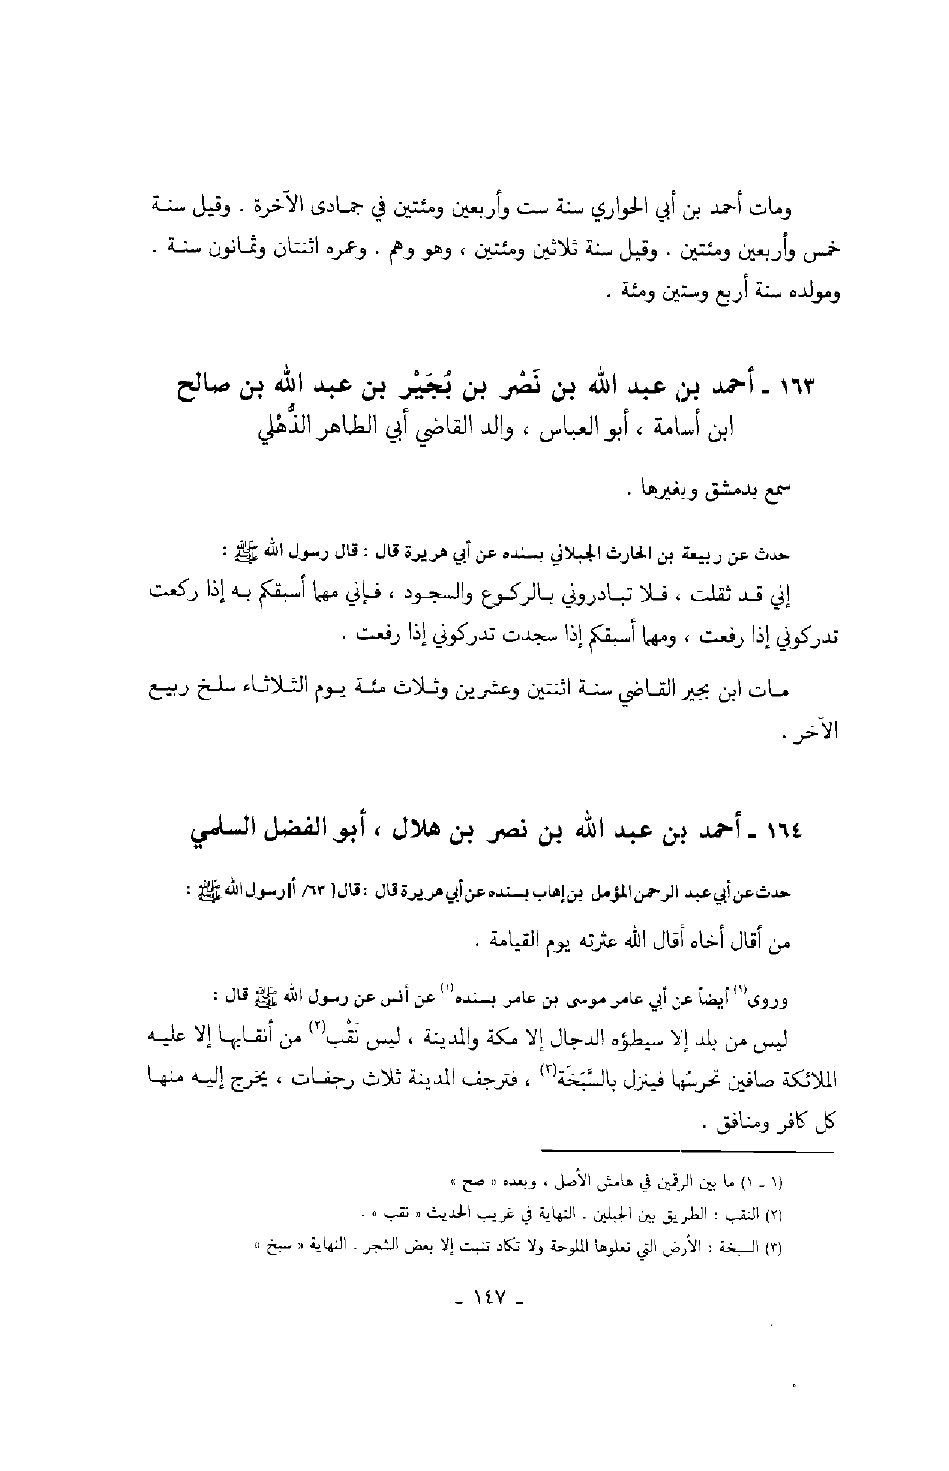 ومات أحمد بن أبي الحواري سنة ست وأربعين ومئتين في جمادى الآخرة . وقيل سنة
خمس وأربعين ومئتين . وقيل سنة ثلاثين ومئتين ، وهو وهم . وعمره اثنتان وثمانون سنة .
ومولده سنة أربع وستين ومئة .
١٦٣ ـ أحمد بن عبد الله بن نَصْر بن بُجَيْر بن عبد الله بن صالح
ابن أسامة ، أبو العباس ، والد القاضي أبي الطاهر الذُّهْلي
سمع بدمشق وبغيرها .
حدث عن ربيعة بن الحارث الجبلاني بسنده عن أبي هريرة قال : قال رسول الله ﷺ :
إني قد ثقلت ، فلا تبادروني بالركوع والسجود ، فإني مهما أسبقكم به إذا ركعت
تدركوني إذا رفعت ، ومهما أسبقكم إذا سجدت تدركوني إذا رفعت .
مات ابن بجير القاضي سنة اثنتين وعشرين وثلاث مئة يوم الثلاثاء سلخ ربيع
الآخر .
١٦٤ ـ أحمد بن عبد الله بن نصر بن هلال ، أبو الفضل السلمي
حدث عن أبي عبد الرحمن المؤمل بن إهاب بسنده عن أبي هريرة قال : قال [ ٦٣/ أ] رسول الله ﷺ :
من أقال أخاه أقال الله عثرته يوم القيامة .
وروى(١) أيضاً عن أبي عامر موسى بن عامر بسنده(١) عن أنس عن رسول الله ﷺ قال :
ليس من بلد إلا سيطؤه الدجال إلا مكة والمدينة ، ليس نَقْب(٢) من أنقابها إلا عليه
الملائكة صافين تحرسُها فينزل بالسَّبَخَة(٣) ، فترجف المدينة ثلاث رجفات ، يخرج إليه منها
كل كافر ومنافق .
(١ ـ ١) ما بين الرقمين في هامش الأصل ، وبعده « صح »
(٢) النقب : الطريق بين الجبلين . النهاية في غريب الحديث « نقب » .
(٣) السبخة : الأرض التي تعلوها الملوحة ولا تكاد تنبت إلا بعض الشجر . النهاية « سبخ »
ـ ١٤٧ ـ